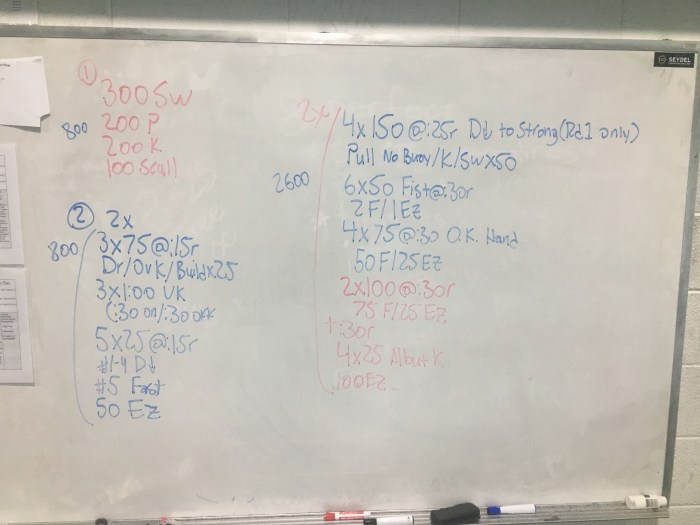 SEYDEL
①
300 SW
800
200 P
200 K
100 Scull
② 2x
800
3x75@:15r
Dr/OvK/Buildx25
3x1:00 VK
(:30 on/:30 okk
5x25@:15r
#1-4 D↓
#5 Fast
50 EZ
2x
4x150@:25r D↓ to Strong(Rd1 only)
Pull No Buoy/K/SWx50
2600
6x50 Fist@:30r
2F/1EZ
4x75@:30 O.K. Hand
50F/25EZ
2x100@:30r
75F/25EZ
+:30r
4x25 Albut K
100EZ